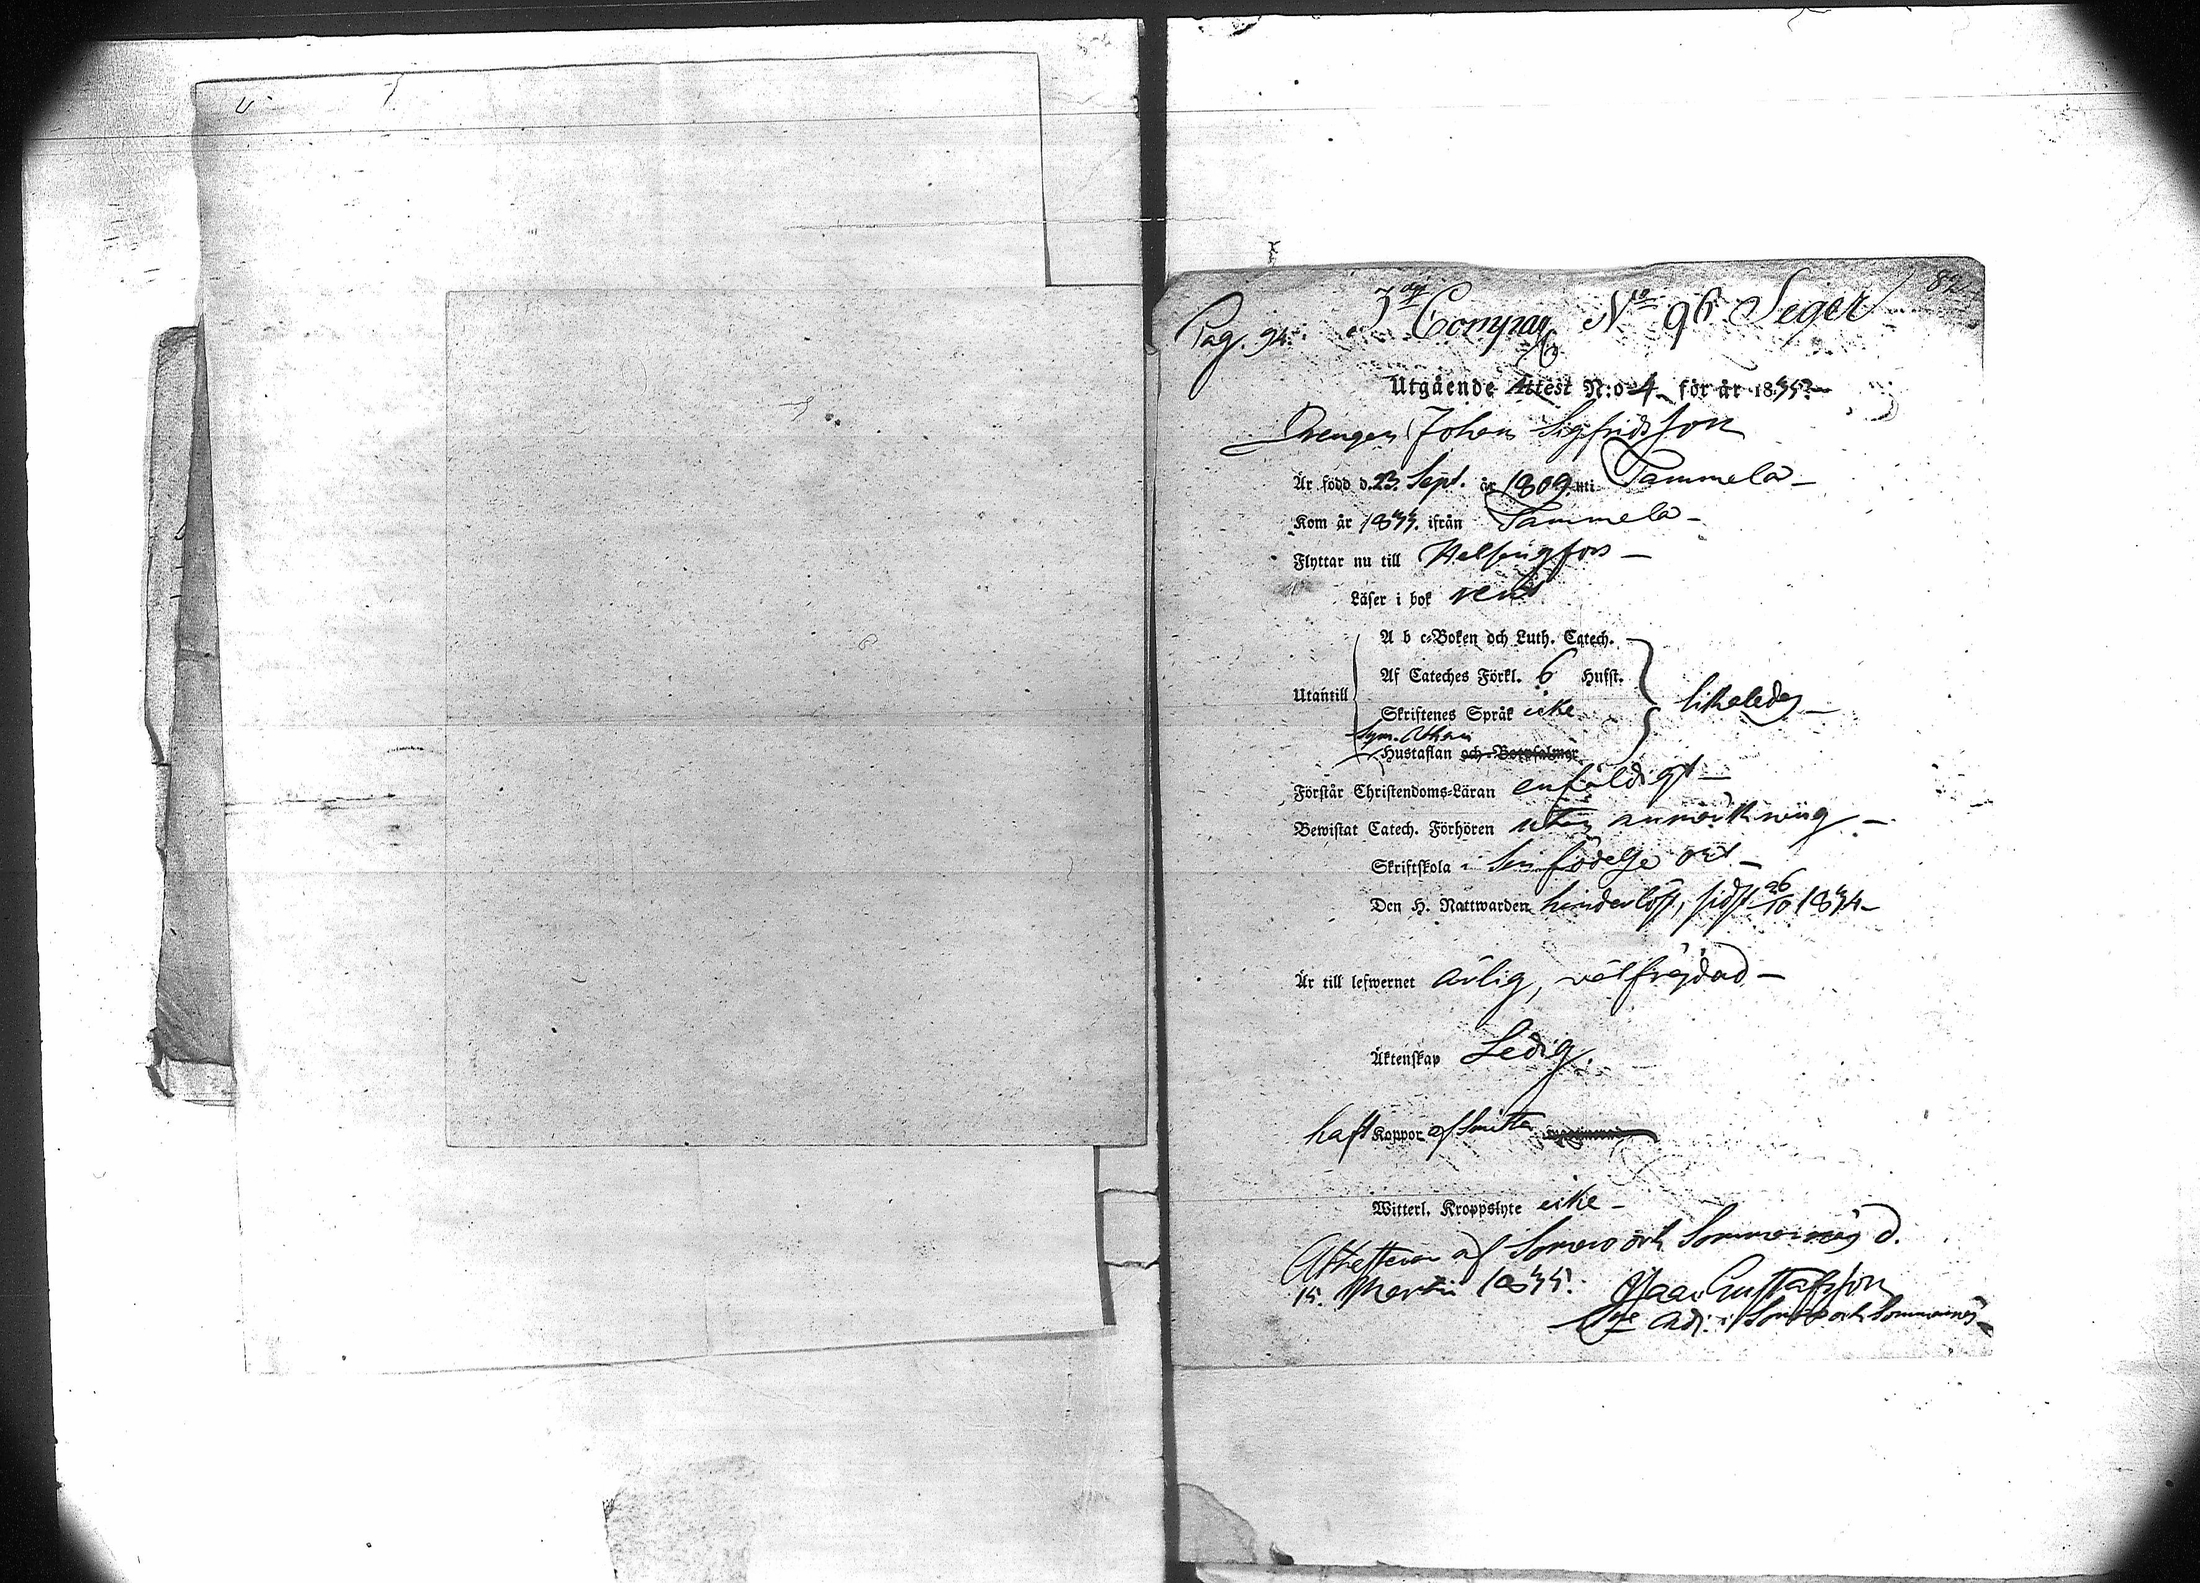 82
Pag. 94. 3dje Compag. No 96 Seger
Utgående Attest N:o 4 för år 1835.
Drengen Johan Sigfridsson
Är född d. 23 Sept. år 1809 uti Tammela
Kom år 1833. ifrån Tammela
Flyttar nu till Helsingfors
Läser i bok rent
A b c-Boken och Luth. Catech.
Af Cateches Förkl. 6 Hufst.
Utantill
likaledes
Skriftenes Språk icke
Sym. Athan
Hustaflan och Botpsalmer
Förstår Christendoms-Läran enfäldigt
Bewistat Catech. Förhören utan anmärkning
Skriftskola i sin födelse ort
Den H. Nattwarden hinderlöst, sidst 26/10 1834
Är till lefwernet ärlig, välfrejdad
Äktenskap Ledig.
haft Koppor af smitta
Witterl. Kroppslyte icke
Attesterar af Somero och Sommarnäs d.
15. Martii 1835. Isaac Gustafsson
adj. i Somero och Sommarnäs